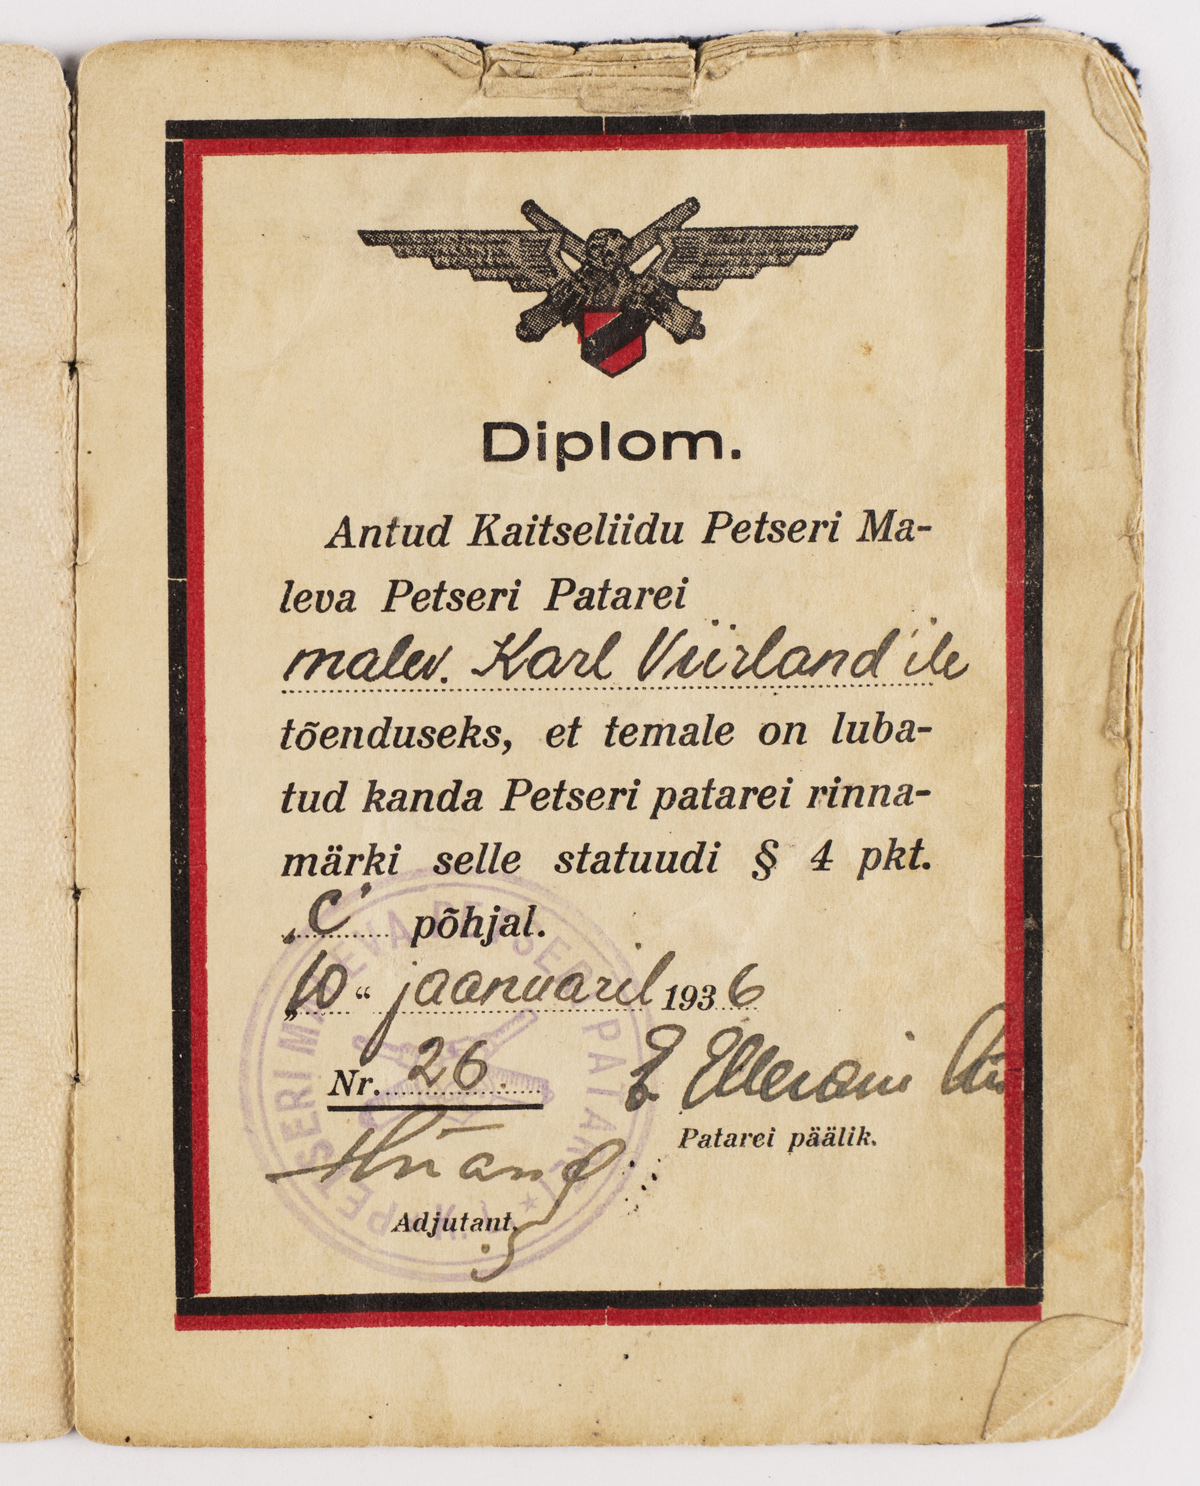 Diplom.
Antud Kaitseliidu Petseri Ma-
leva Petseri Patarei
malev. Karl Viirland'ile
tõenduseks, et temale on luba-
tud kanda Petseri patarei rinna-
märki selle statuudi § 4 pkt.
„C" põhjal.
„10" jaanuaril 1936
Nr. 26.
Patarei päälik.
Adjutant.
PETSERI MALEVA PETSERI PATAREI